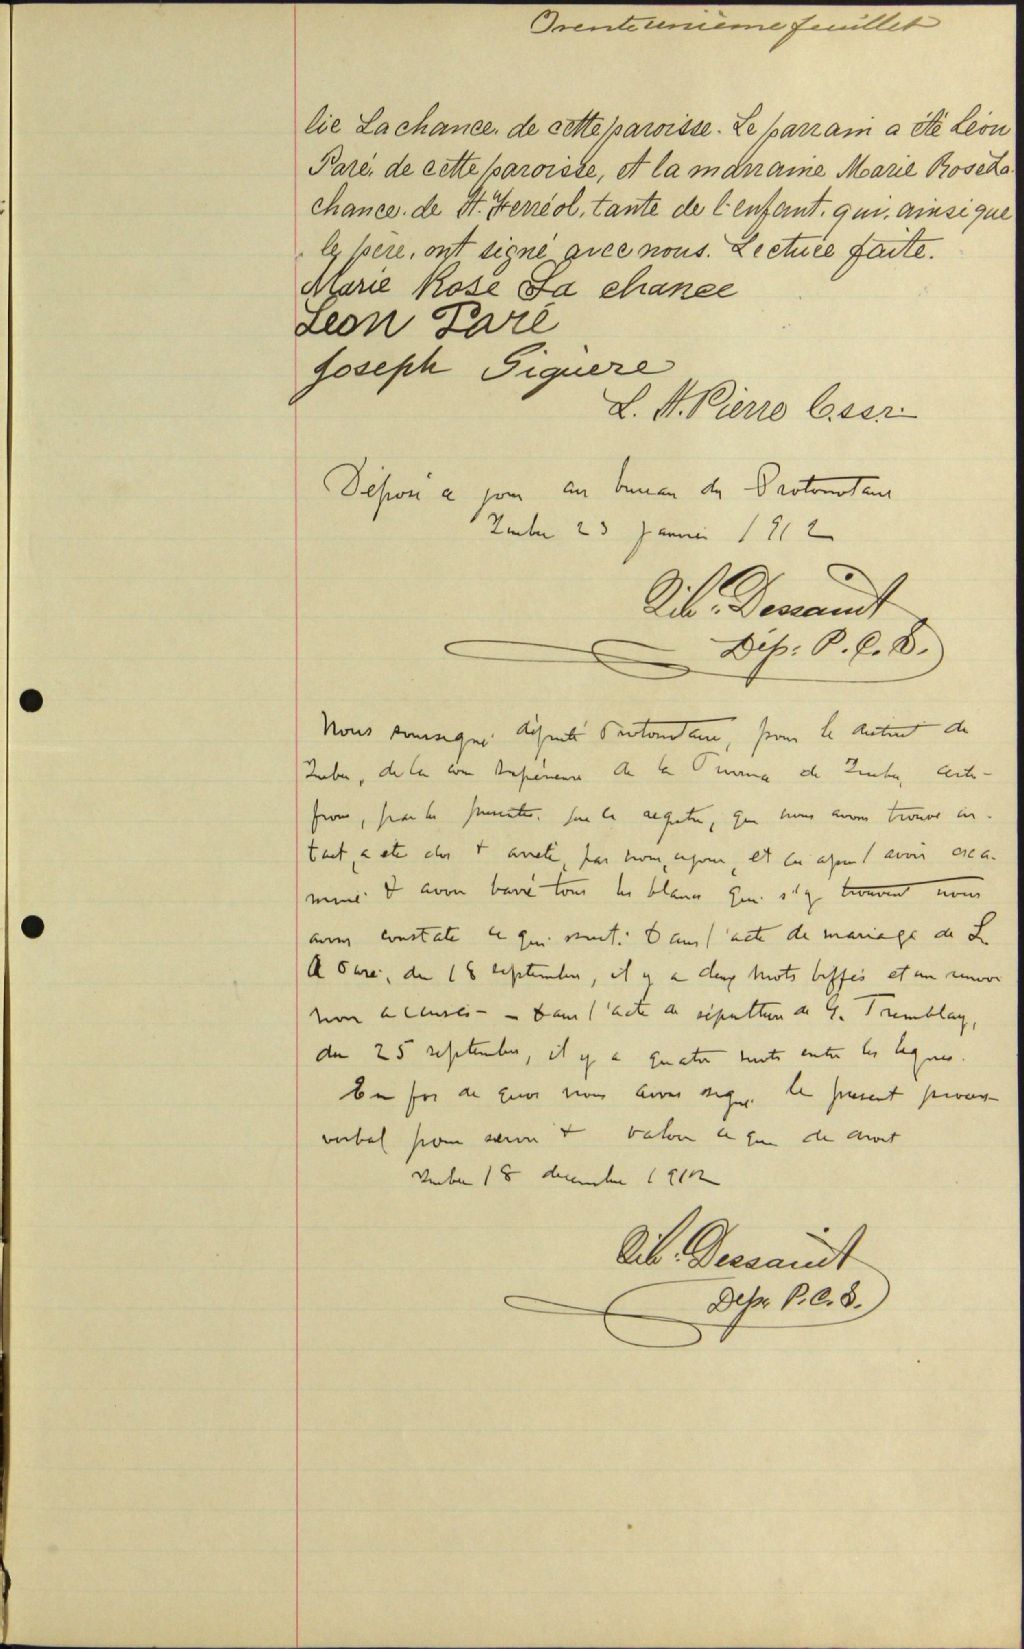 Trente unième feuillet
lie Lachance, de cette paroisse. Le parrain a été Léon
Paré, de cette paroisse, et la marraine Marie Rose La-
chance, de St. Ferréol, tante de l'enfant, qui, ainsi que
le père, ont signé avec nous. Lecture faite.
Marie Rose La chance
Léon Paré
Joseph Giguère
L. St. Pierre C.ss.r.
Déposé ce jour au bureau du Protonotaire
Québec 23 janvier 1912
Dessaint
Dép: P. C. S.
Nous soussigné député Protonotaire, pour le district de
Québec, de la cour supérieure de la Province de Québec, certi-
fions, par les présentes, que le registre, que nous avons trouvé in-
tact, a été clos + arrêté, par nous, ce jour, et qu'après l'avoir exa-
miné & avoir barré tous les blancs qui s'y trouvent nous
avons constaté ce qui suit: Dans l'acte de mariage de L.
A Paré, du 18 septembre, il y a deux mots biffés et un renvoi
non accusés - Dans l'acte de sépulture de G. Tremblay,
du 25 septembre, il y a quatre mots entre les lignes.
En foi de quoi nous avons signé le présent procès-
verbal pour servir + valoir ce que de droit
Québec 18 décembre 1912
Dessaint
Dép. P.C.S.